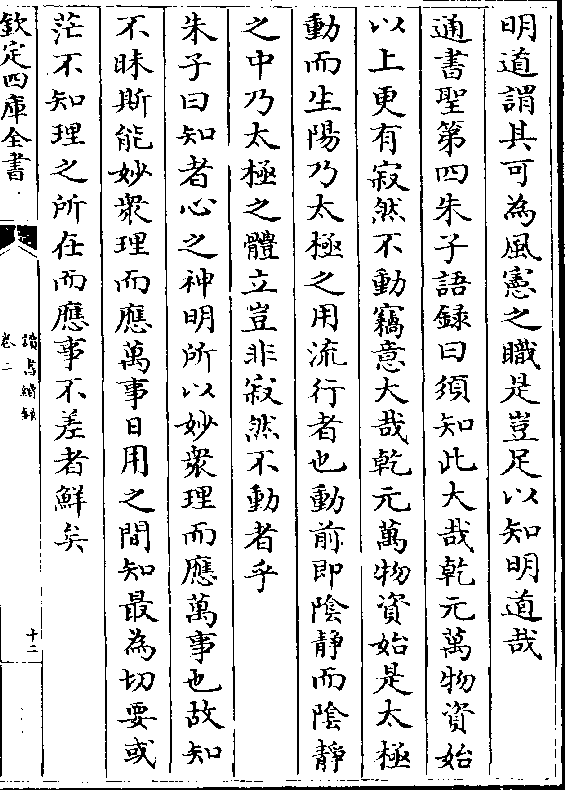 明道謂其可為風憲之職是豈足以知明道哉
通書聖第四朱子語録曰須知此大哉乾元萬物資始
以上更有寂然不動竊意大哉乾元萬物資始是太極
動而生陽乃太極之用流行者也動前即陰靜而陰靜
之中乃太極之體立豈非寂然不動者乎
朱子曰知者心之神明所以妙衆理而應萬事也故知
不昧斯能妙衆理而應萬事日用之間知最為切要或
茫不知理之所在而應事不差者鮮矣
欽定四庫全書
讀書續録
卷二
十二